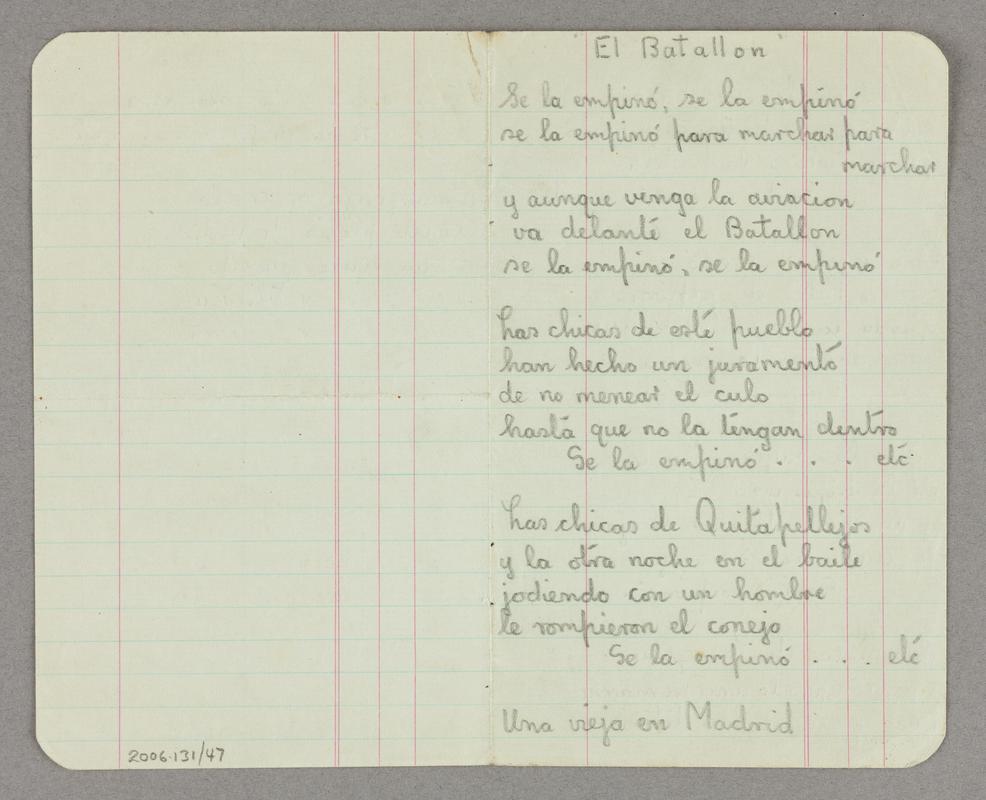 "El Batallon"
Se la empinó, se la empinó
se la empinó para marchar para
marchar
y aunque venga la aviacion
va delante el Batallon
se la empinó, se la empinó
Las chicas de este pueblo
han hecho un juramento
de no menear el culo
hasta que no la tengan dentro
Se la empinó . . . etc
Las chicas de Quitapellejos
y la otra noche en el baile
jodiendo con un hombre
le rompieron el conejo
Se la empinó . . . etc
Una vieja en Madrid
2006.131/47